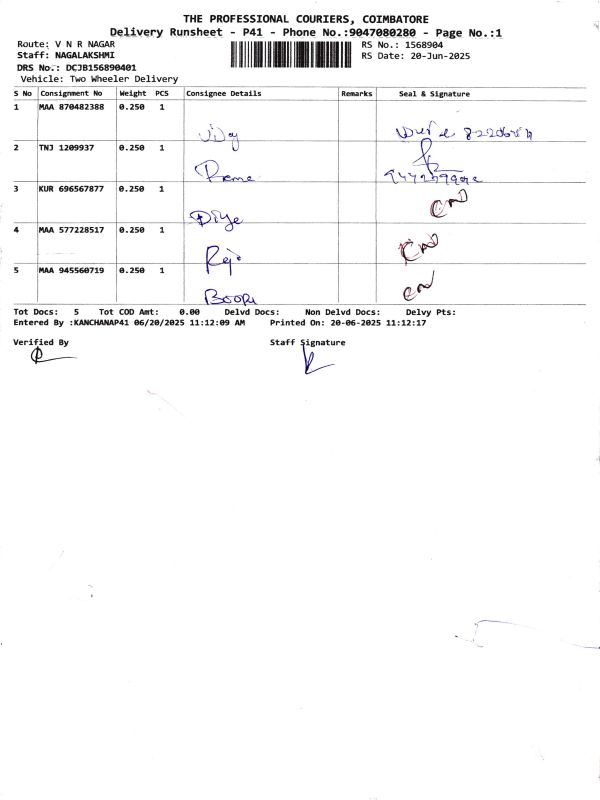 THE PROFESSIONAL COURIERS, COIMBATORE
Delivery Runsheet - P41 - Phone No.:9047080280 - Page No.:1
Route: V N R NAGAR
RS No.: 1568904
Staff: NAGALAKSHMI
RS Date: 20-Jun-2025
DRS No.: DCJB156890401
Vehicle: Two Wheeler Delivery
S No Consignment No Weight PCS Consignee Details Remarks Seal & Signature
1 MAA 870482388 0.250 1
Vijay
2 TNJ 1209937 0.250 1
Rama
3 KUR 696567877 0.250 1
Diya
4 MAA 577228517 0.250 1
Raji
5 MAA 945560719 0.250 1
Tot Docs: 5 Tot COD Amt: 0.00 Delvd Docs: Non Delvd Docs: Delvy Pts:
Entered By :KANCHANAP41 06/20/2025 11:12:09 AM Printed On: 20-06-2025 11:12:17
Verified By
Staff Signature